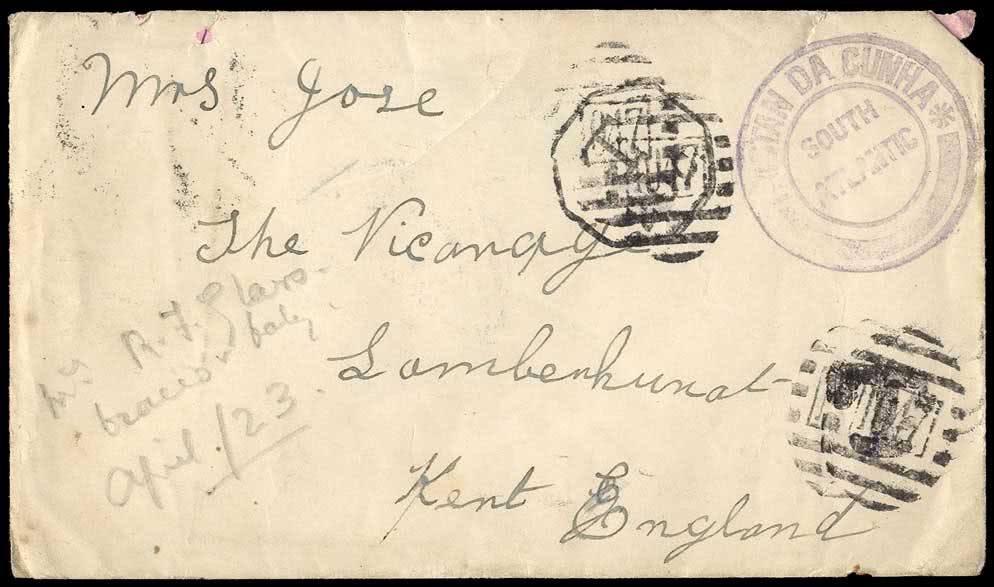 Mrs Jose
TRISTAN DA CUNHA *
SOUTH
ATLANTIC
The Vicarage
Lamberhurst
Kent England
R. F. Glass
April /23.